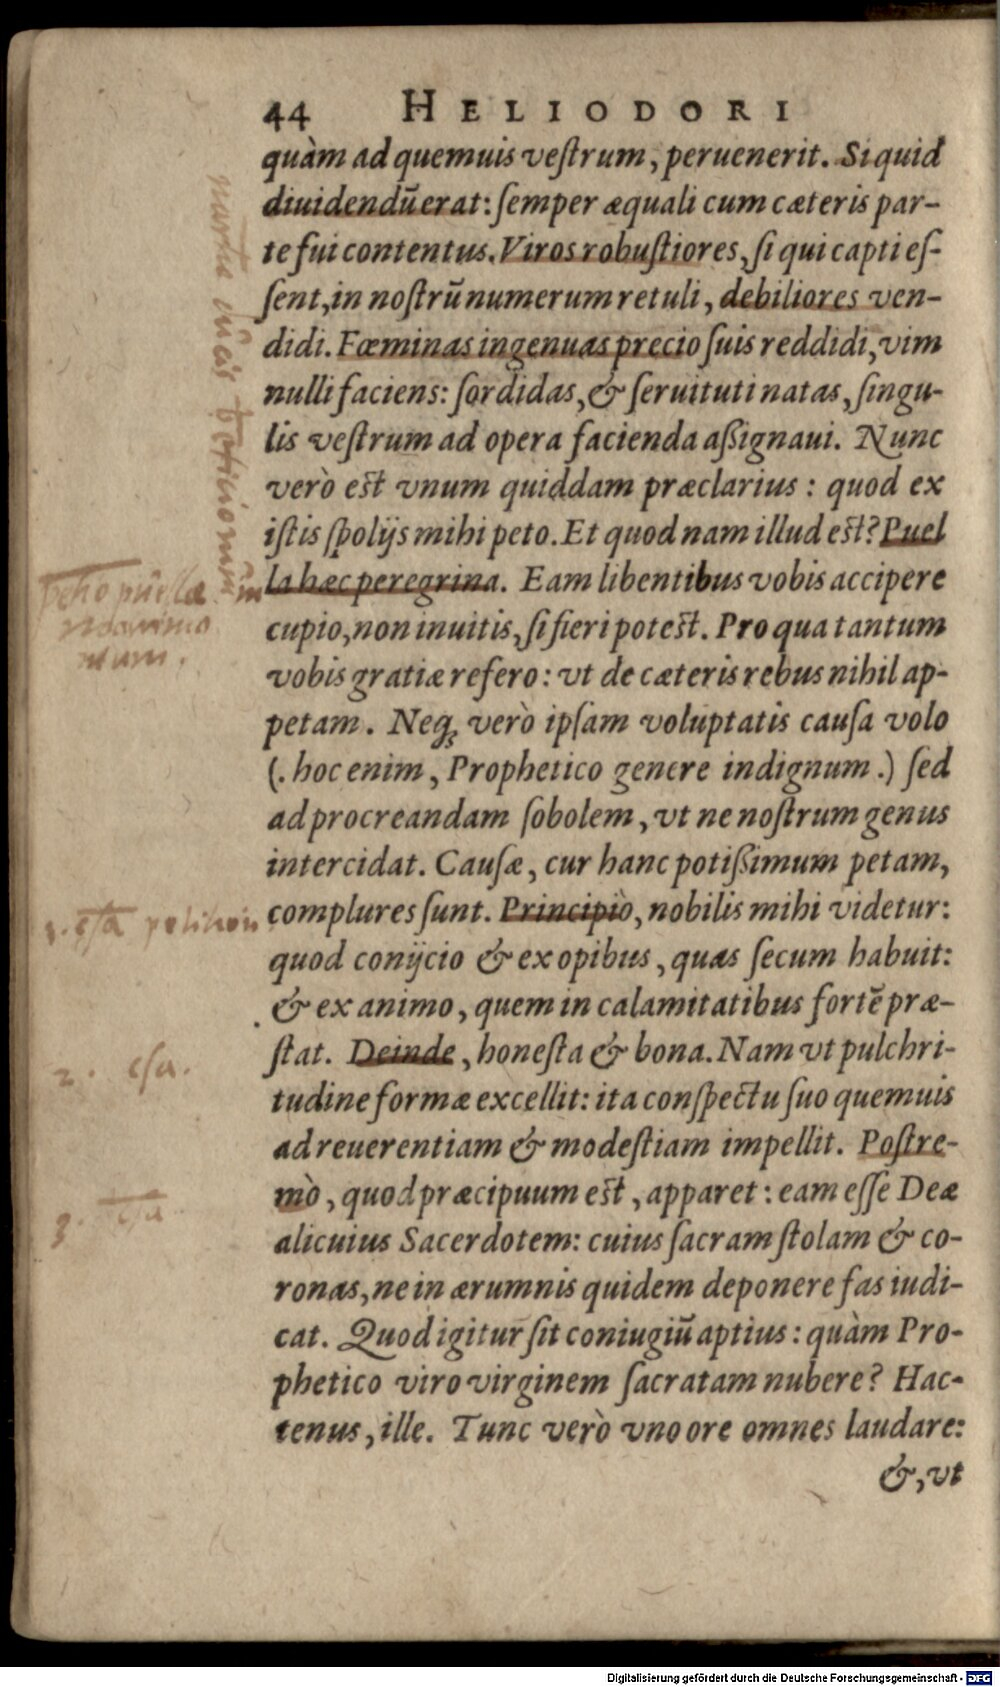 44 HELIODORI
quàm ad quemuis veſtrum, peruenerit. Si quid
diuidendũ erat: ſemper æquali cum cæteris par-
te fui contentus. Viros robuſtiores, ſi qui capti eſ-
ſent, in noſtrũ numerum retuli, debiliores ven-
didi. Fœminas ingenuas precio ſuis reddidi, vim
nulli faciens: ſordidas, & ſeruituti natas, ſingu-
lis veſtrum ad opera facienda aßignaui. Nunc
verò est vnum quiddam præclarius: quod ex
iſtis ſpolijs mihi peto. Et quod nam illud est? Puel
la hæc peregrina. Eam libentibus vobis accipere
cupio, non inuitis, ſi fieri potest. Pro qua tantum
vobis gratiæ refero: vt de cæteris rebus nihil ap-
petam. Neq; verò ipſam voluptatis cauſa volo
(. hoc enim, Prophetico genere indignum .) ſed
ad procreandam ſobolem, vt ne noſtrum genus
intercidat. Cauſæ, cur hanc potißimum petam,
complures ſunt. Principiò, nobilis mihi videtur:
quod conijcio & ex opibus, quas ſecum habuit:
& ex animo, quem in calamitatibus fortẽ præ-
ſtat. Deinde, honeſta & bona. Nam vt pulchri-
tudine formæ excellit: ita conſpectu ſuo quemuis
ad reuerentiam & modeſtiam impellit. Poſtre-
mò, quod præcipuum est, apparet: eam eſſe Deæ
alicuius Sacerdotem: cuius ſacram ſtolam & co-
ronas, ne in ærumnis quidem deponere fas iudi-
cat. Quod igitur ſit coniugiũ aptius: quàm Pro-
phetico viro virginem ſacratam nubere? Hac-
tenus, ille. Tunc verò vno ore omnes laudare:
&, vt
2. cſa.
3.
Digitalisierung gefördert durch die Deutsche Forschungsgemeinschaft - DFG